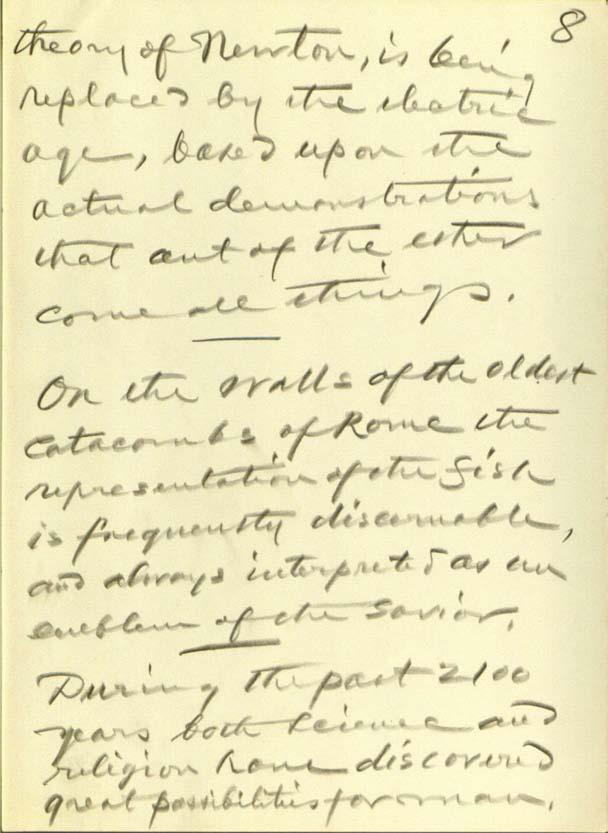 8
theory of Newton, is being
replaced by the electric
age, based upon the
actual demonstrations
that out of the ether
come all things.
On the walls of the oldest
catacombs of Rome the
representation of the fish
is frequently discernable,
and always interpreted as an
emblem of the Savior.
During the past 2100
years both science and
religion have discovered
great possibilities for man.